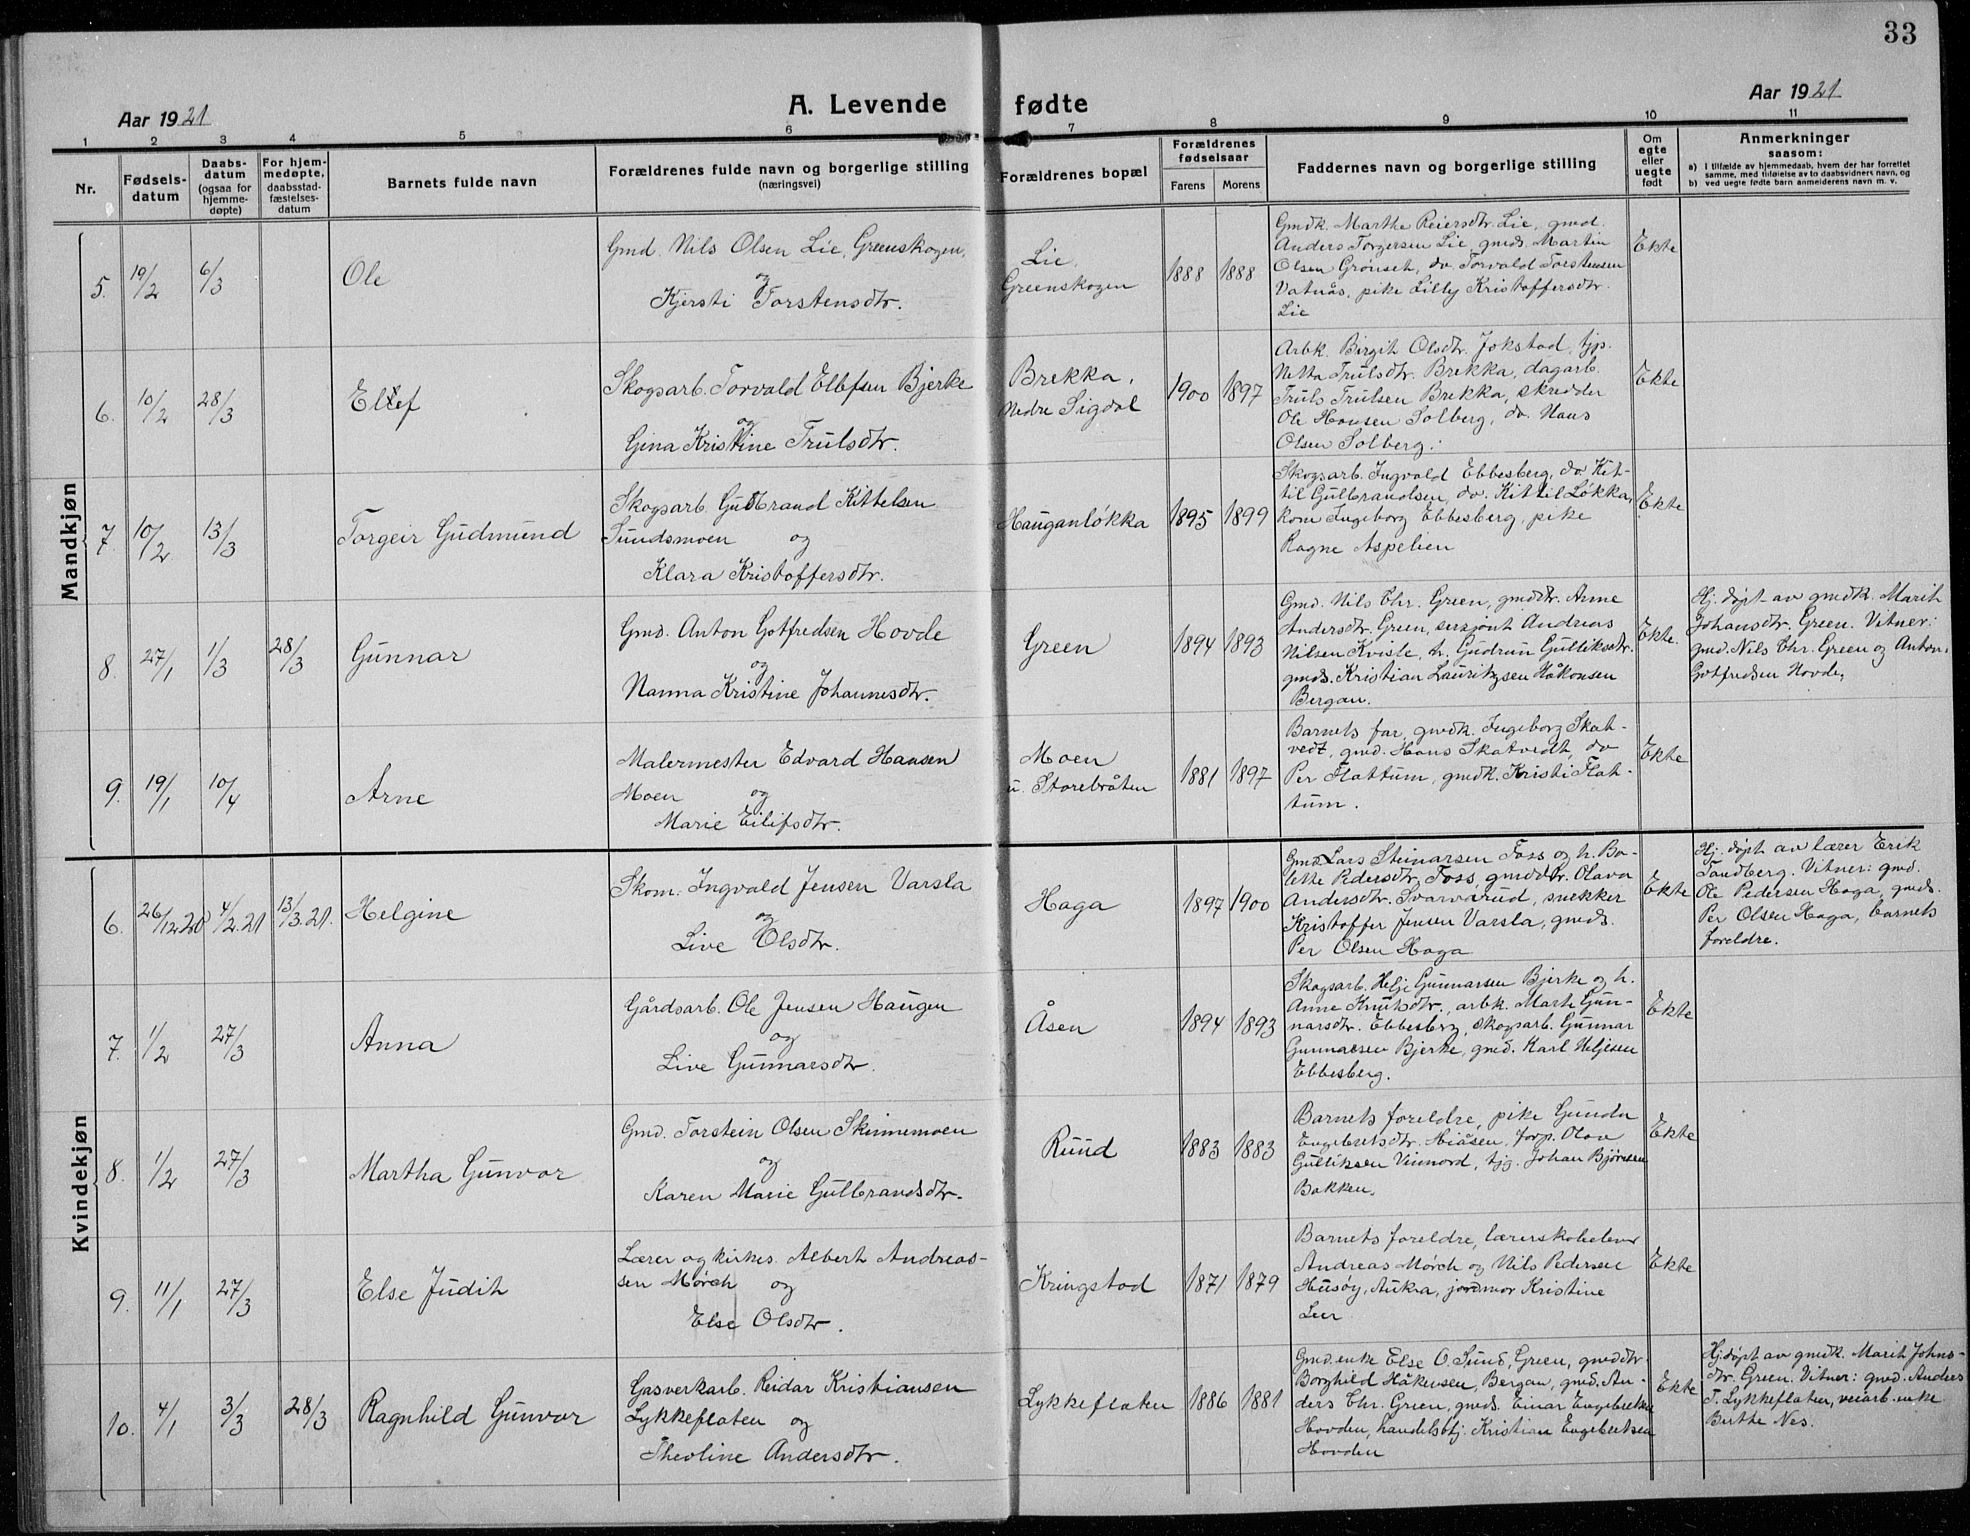 33
A. Levende fødte
Aar 1921
Aar 1921
1 2 3 4 5 6 7 8 9 10 11
Nr.
Fødsels-
datum
Daabs-
datum
(ogsaa for
hjemme-
døpte)
For hjem-
medøpte,
daabsstad-
fæstelses-
datum
Barnets fulde navn
Forældrenes fulde navn og borgerlige stilling
(næringsvei)
Forældrenes bopæl
Forældrenes
fødselsaar
Farens Morens
Faddernes navn og borgerlige stilling
Om
egte
eller
uegte
født
Anmerkninger
saasom:
a) I tilfælde av hjemmedaab, hvem der har forrettet
samme, med tilføielse av to daabsvidners navn, og
b) ved uegte fødte barn anmelderens navn m. v.
Mandkjøn
5. 19/2 6/3
Ole
Gmd. Nils Olsen Lie, Greenskogen,
og
Kjersti Torstensdtr.
Lie,
Greenskogen
1888 1888
Gmdk. Marthe Reiersdtr. Lie, gmd.
Anders Torgersen Lie, gmds. Martin
Olsen Grønset, do. Torvald Torstensen
Vatnås, pike Lilly Kristoffersdtr.
Lie
Ekte
6. 10/2 28/3
Ellef
Skogsarb. Torvald Ellefsen Bjerke
og
Gina Kristine Trulsdtr.
Brekka,
Nedre Sigdal
1900 1897
Arbk. Birgit Olsdtr. Jokstad, tjp.
Netta Trulsdtr. Brekka, dagarb.
Truls Trulsen Brekka, skredder
Ole Hansen Solberg, do. Hans
Olsen Solberg.
Ekte
7. 10/2 13/3
Torgeir Gudmund
Skogsarb. Gulbrand Kittelsen
Sundsmoen og
Klara Kristoffersdtr.
Hauganløkka
1895 1899
Skogsarb. Ingvald Ebbesberg, do. Kit-
til Gulbrandsen, do. Kittil Løkka,
kom Ingeborg Ebbesberg, pike
Ragne Aspelien
Ekte
8. 27/1 1/3 28/3
Gunnar
Gmd. Anton Gotfredsen Hovde
og
Nanna Kristine Johannesdtr.
Green
1894 1893
Gmd. Nils Chr. Green, gmddtr. Anne
Andersdtr. Green, sersjant Andreas
Nilsen Kviste, h. Gudrun Gulliksdtr.
gmds. Kristian Lauritzsen Håkonsen
Bergan.
Ekte.
Hj. døpt av gmdk. Marith
Johansdtr. Green. Vitner:
gmd. Nils Chr. Green og Anton
Gotfredsen Hovde.
9. 19/1 10/4
Arne
Malermester Edvard Hansen
Moen og
Marie Eilifsdtr.
Moen
u. Storebråten
1881 1897
Barnets far, gmdk. Ingeborg Skat-
vedt, gmd. Hans Skatvedt, do
Per Flattum, gmdk. Kristi Flat-
tum.
Ekte
Kvindekjøn
6. 26/12 20 4/2.21 13/3.21.
Helgine
Skom. Ingvald Jensen Varsla
og
Live Olsdtr.
Haga
1897 1900
Gmd. Lars Steinarsen Foss og h. Bo-
lette Pedersdtr. Foss, gmddtr. Olava
Andersdtr. Svarvarud, snekker
Kristoffer Jensen Varsla, gmds.
Per Olsen Haga
Ekte
Hj. døpt av lærer Erik
Sandberg. Vitner: gmd.
Ole Pedersen Haga, gmds.
Per Olsen Haga, barnets
foreldre.
7. 1/2 27/3
Anna
Gårdsarb. Ole Jensen Haugen
og
Live Gunnarsdtr.
Åsen
1894 1893
Skogsarb. Helje Gunnarsen Bjerke og h.
Anne Knutsdtr., arbk. Marte Gun-
narsdtr. Ebbesberg, skogsarb. Gunnar
Gunnarsen Bjerke, gmd. Karl Heljesen
Ebbesberg.
Ekte
8. 1/2 27/3
Martha Gunvor
Gmd. Torstein Olsen Skinnemoen
og
Karen Marie Gulbrandsdtr.
Ruud
1883 1883
Barnets foreldre, pike Gunda
Engebretsdtr. Hiåsen, forp. Olav
Gulliksen Vinnord, tjg. Johan Bjørnsen
Bakken.
Ekte
9. 11/1 27/3
Else Judith
Lærer og kirkes. Albert Andreas-
sen Mørch og
Else Olsdtr.
Kringstad
1871 1879
Barnets foreldre, lærerskoleelever
Andreas Mørch og Nils Pedersen
Husøy, Aukra, jordmor Kristine
Leer
Ekte
10. 4/1 3/3 28/3
Ragnhild Gunvor
Gasverkarb. Reidar Kristiansen
Lykkeflaten og
Theoline Andersdtr.
Lykkeflaten
1886 1881
Gmd.enke Else O. Sund, Green, gmddtr.
Borghild Håkensen, Bergan, gmd. An-
ders Chr. Green, gmds. Einar Engebretsen
Hovden, handelsbtj. Kristian Engebretsen
Hovden
Ekte
Hj. døpt av gmdk. Marith Johns-
dtr. Green. Vitner: gmd. Anders
T. Lykkeflaten, veiarb. enke
Berthe Nes.